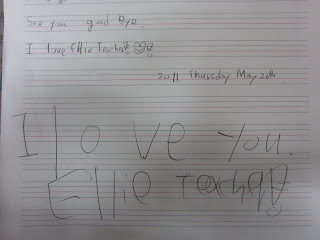 See you good Bye.
I love Ellie Teacher!♡!
2011 Thursday May 20th
I love you.
Ellie Teacher!